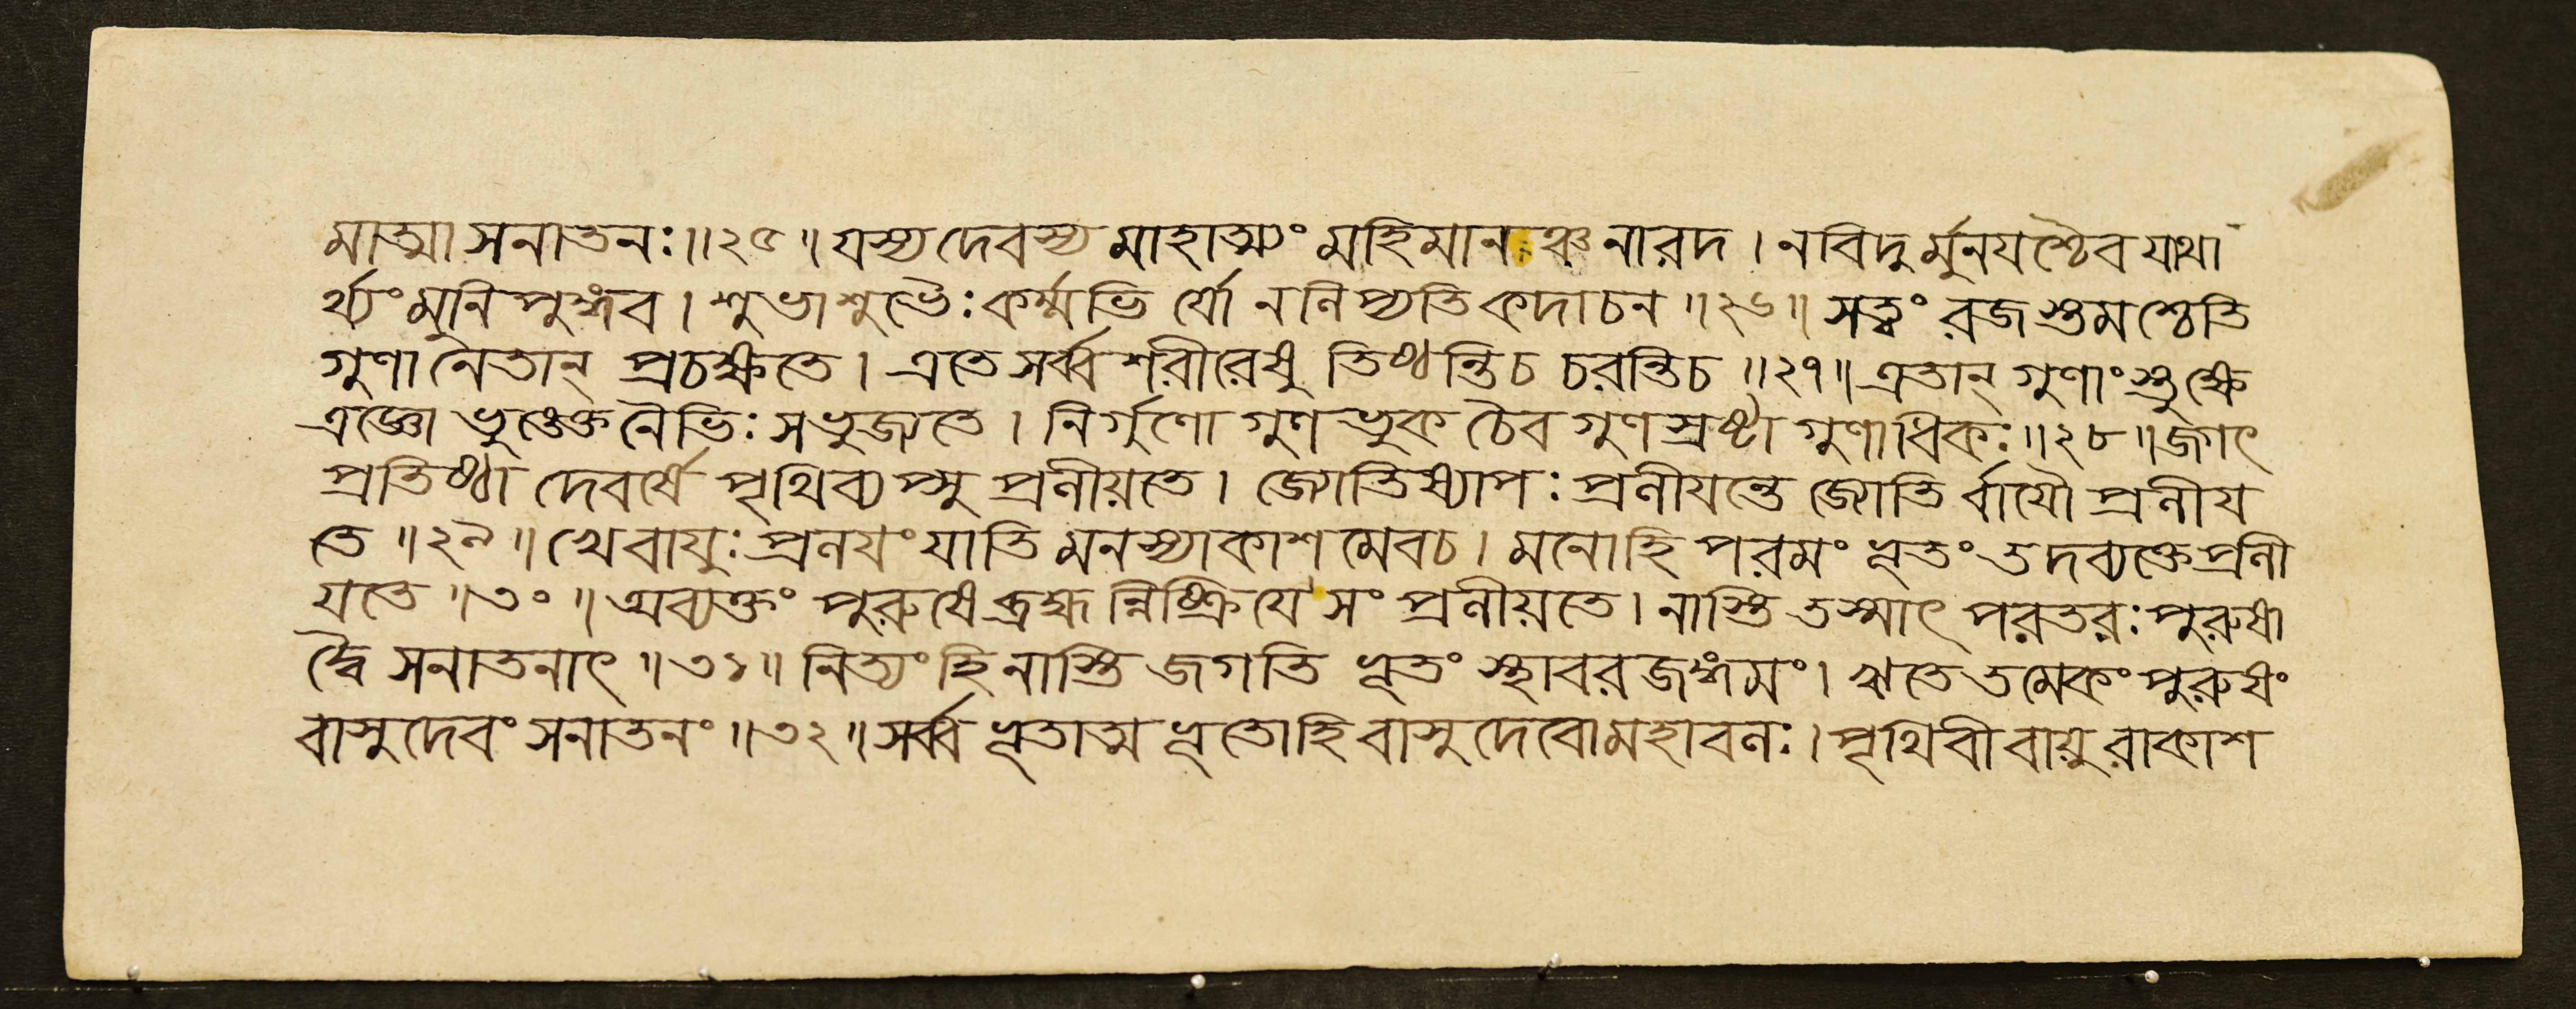 মাত্মা সনাতনঃ॥২৫॥ যস্য দেবস্য মাহাত্ম্যং মহিমানঞ্চ নারদ। ন বিদুর্মুনযশ্চৈব যাথা
র্থ্যং মুনি পুঙ্গব। শুভাশুভৈঃ কর্ম্মভি র্যো ন লিপ্যতি কদাচন॥২৬॥ সত্ত্বং রজস্তমশ্চেতি
গুণানেতান্ প্রচক্ষতে। এতে সর্ব্ব শরীরেষু তিষ্ঠন্তি চ চরন্তি চ॥২৭॥ এতান্ গুণাংস্তু ক্ষে
ত্রজ্ঞো ভুঙ্ক্তে নৈভিঃ স ভুজ্যতে। নির্গুণো গুণ ভুক চৈব গুণ স্রষ্টা গুণাধিকঃ॥২৮॥ জগৎ
প্রতিষ্ঠা দেবর্ষে পৃথিব্যপ্সু প্রলীয়তে। জ্যোতিষ্যাপঃ প্রলীযন্তে জ্যোতি র্বাযৌ প্রলীয
তে॥২৯॥ খে বাযুঃ প্রলযং যাতি মনস্যাকাশ মেবচ। মনোহি পরমং ভূতং তদব্যক্তে প্রলী
যতে॥৩০॥ অব্যক্তং পুরুষে ব্রহ্মন্নিষ্ক্রিযে সং প্রলীয়তে। নাস্তি তস্মাৎ পরতরঃ পুরুষা
দ্বৈ সনাতনাৎ॥৩১॥ নিত্যং হি নাস্তি জগতি ভূতং স্থাবর জঙ্গমং। ঋতে তমেকং পুরুষং
বাসুদেবং সনাতনং॥৩২॥ সর্ব্ব ভূতাত্ম ভূতোহি বাসুদেবো মহাবলঃ। পৃথিবী বায়ুরাকাশ